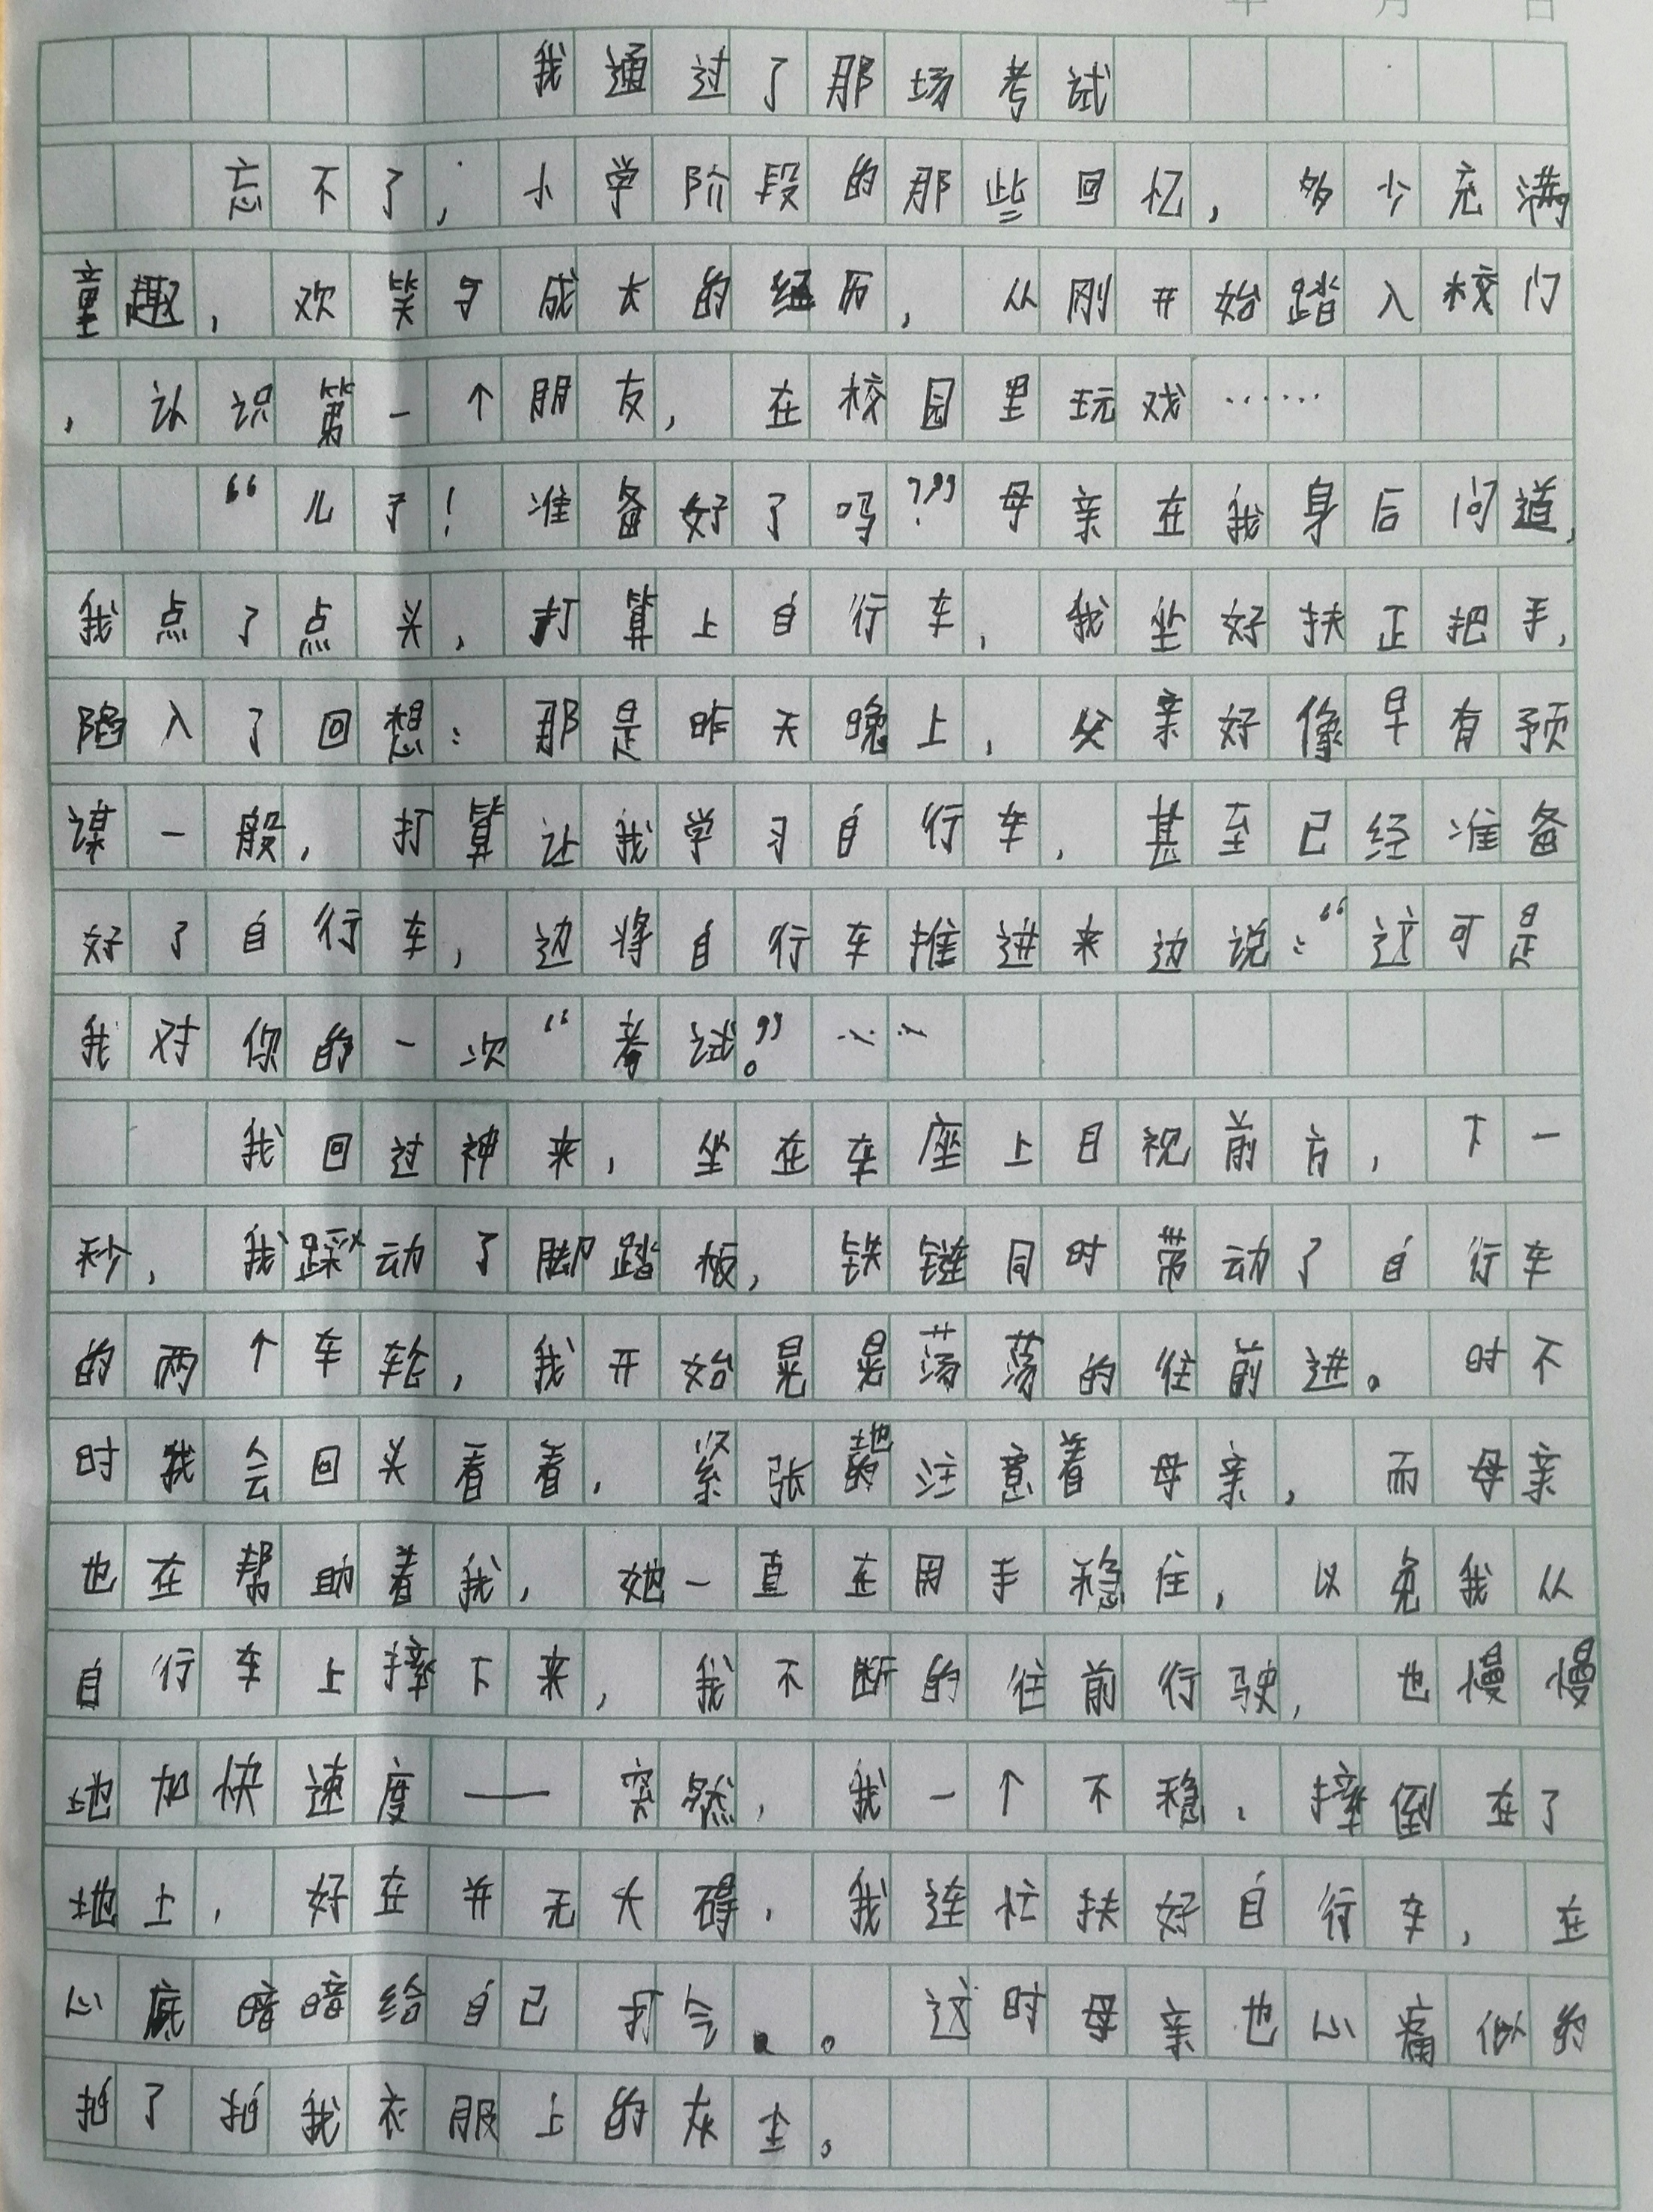 年 月 日
我通过了那场考试
忘不了，小学阶段的那些回忆，多少充满
童趣，欢笑与成长的经历，从刚开始踏入校门
，认识第一个朋友，在校园里玩戏……
“儿子！准备好了吗？”母亲在我身后问道，
我点了点头，打算上自行车，我坐好扶正把手，
陷入了回想：那是昨天晚上，父亲好像早有预
谋一般，打算让我学习自行车，甚至已经准备
好了自行车，边将自行车推进来边说：“这可是
我对你的一次“考试。”……
我回过神来，坐在车座上目视前方，下一
秒，我踩动了脚踏板，铁链同时带动了自行车
的两个车轮，我开始晃晃荡荡的往前进。时不
时我会回头看看，紧张地注意着母亲，而母亲
也在帮助着我，她一直在用手稳住，以免我从
自行车上摔下来，我不断的往前行驶，也慢慢
地加快速度——突然，我一个不稳，摔倒在了
地上，好在并无大碍，我连忙扶好自行车，在
心底暗暗给自己打气。这时母亲也心痛似的
拍了拍我衣服上的灰尘。